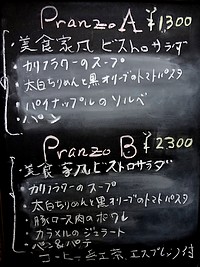 Pranzo A ¥1300
・美食家風ビストロサラダ
・カリフラワーのスープ
・太白ちりめんと黒オリーブのトマトパスタ
・パイナップルのソルベ
・パン
Pranzo B ¥2300
・美食家風ビストロサラダ
・カリフラワーのスープ
・太白ちりめんと黒オリーブのトマトパスタ
・豚ロース肉の
・カラメルのジェラート
・パン&パテ
コーヒー、紅茶、エスプレッソ付